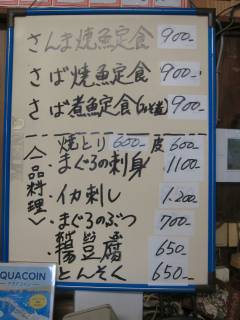 さんま焼魚定食 900-
さば焼魚定食 900-
さば煮魚定食(みそ煮) 900-
〈一品料理〉
焼とり 600- 皮 600-
・まぐろの刺身 1100-
・イカ刺し 1.200-
・まぐろのぶつ 700-
・揚豆腐 650-
とんそく 650-
QUACOIN